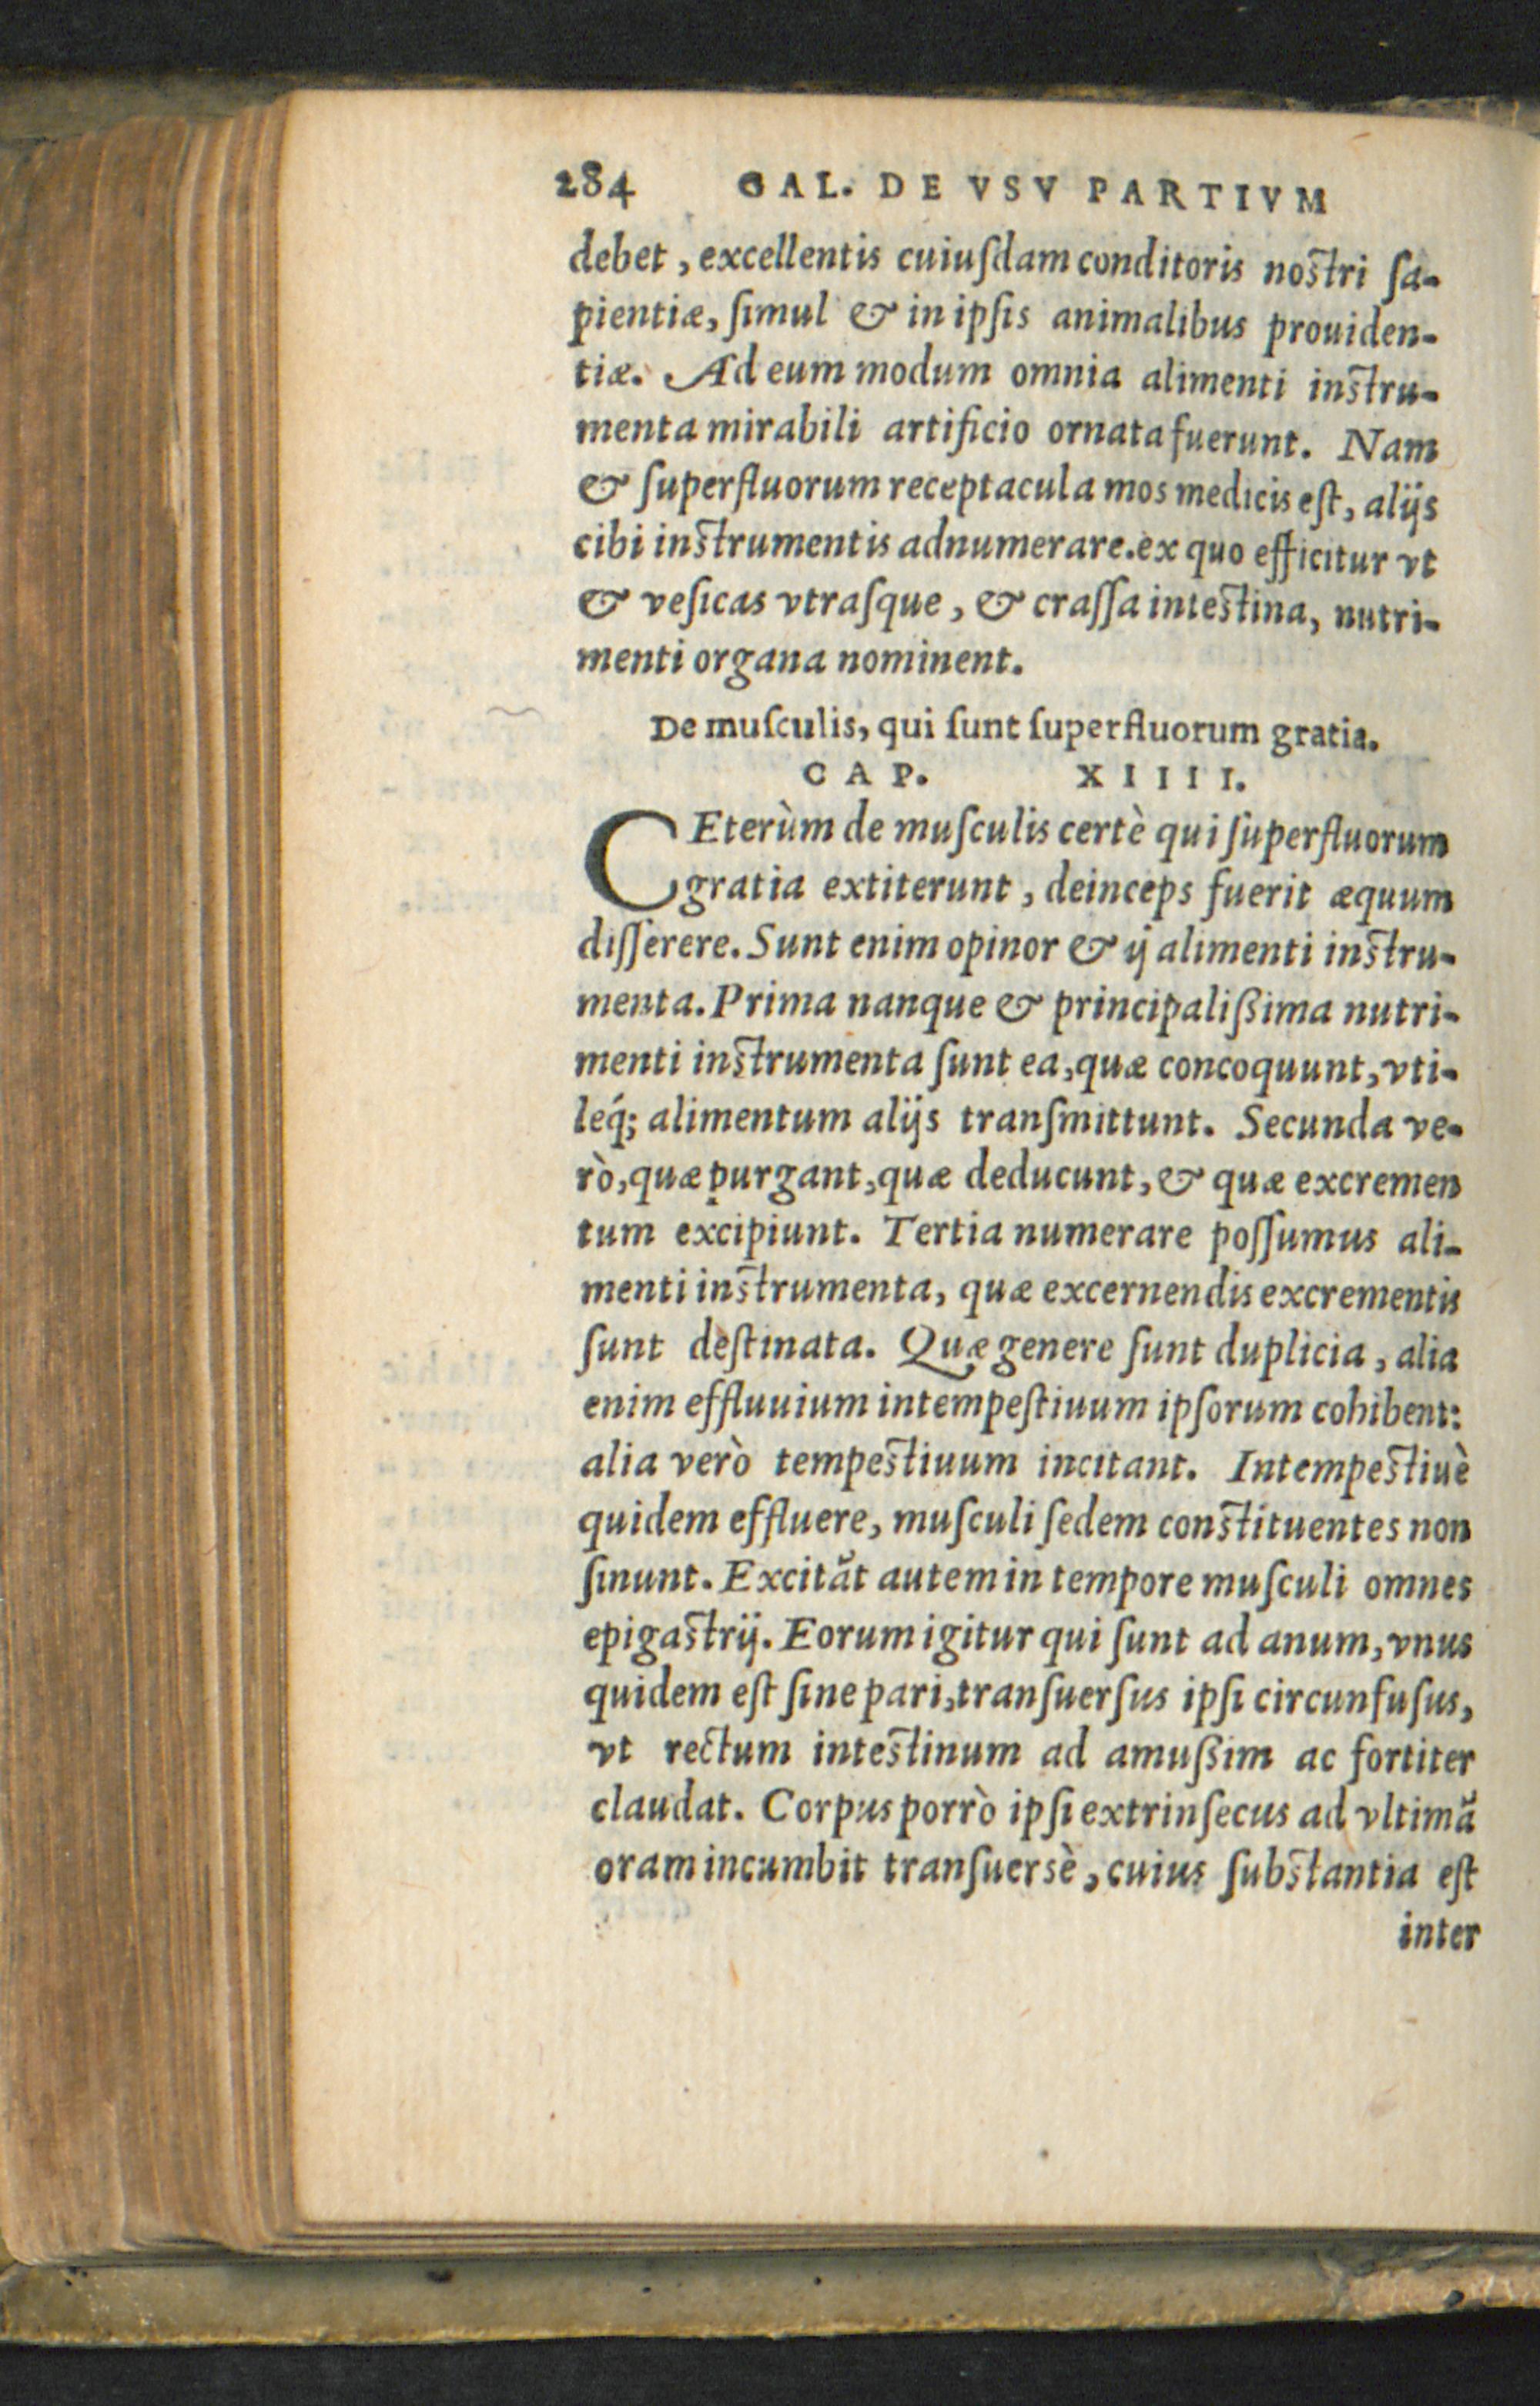 284 GAL. DE VSV PARTIVM
debet, excellentis cuiuſdam conditoris noſtri ſa-
pientiæ, ſimul & in ipſis animalibus prouiden-
tiæ. Ad eum modum omnia alimenti inſtru-
menta mirabili artificio ornata fuerunt. Nam
& ſuperfluorum receptacula mos medicis eſt, alijs
cibi inſtrumentis adnumerare. ex quo efficitur vt
& veſicas vtraſque, & craſſa inteſtina, nutri-
menti organa nominent.
De muſculis, qui ſunt ſuperfluorum gratia.
CAP. XIIII.
CEterùm de muſculis certè qui ſuperfluorum
gratia extiterunt, deinceps fuerit æquum
diſſerere. Sunt enim opinor & ij alimenti inſtru-
menta. Prima nanque & principalißima nutri-
menti inſtrumenta ſunt ea, quæ concoquunt, vti-
leq́; alimentum alijs tranſmittunt. Secunda ve-
rò, quæ purgant, quæ deducunt, & quæ excremen
tum excipiunt. Tertia numerare poſſumus ali-
menti inſtrumenta, quæ excernendis excrementis
ſunt deſtinata. Quæ genere ſunt duplicia, alia
enim effluuium intempeſtiuum ipſorum cohibent:
alia verò tempeſtiuum incitant. Intempeſtiuè
quidem effluere, muſculi ſedem conſtituentes non
ſinunt. Excitãt autem in tempore muſculi omnes
epigaſtrij. Eorum igitur qui ſunt ad anum, vnus
quidem eſt ſine pari, tranſuerſus ipſi circunfuſus,
vt rectum inteſtinum ad amußim ac fortiter
claudat. Corpus porrò ipſi extrinſecus ad vltimã
oram incumbit tranſuersè, cuius ſubſtantia eſt
inter